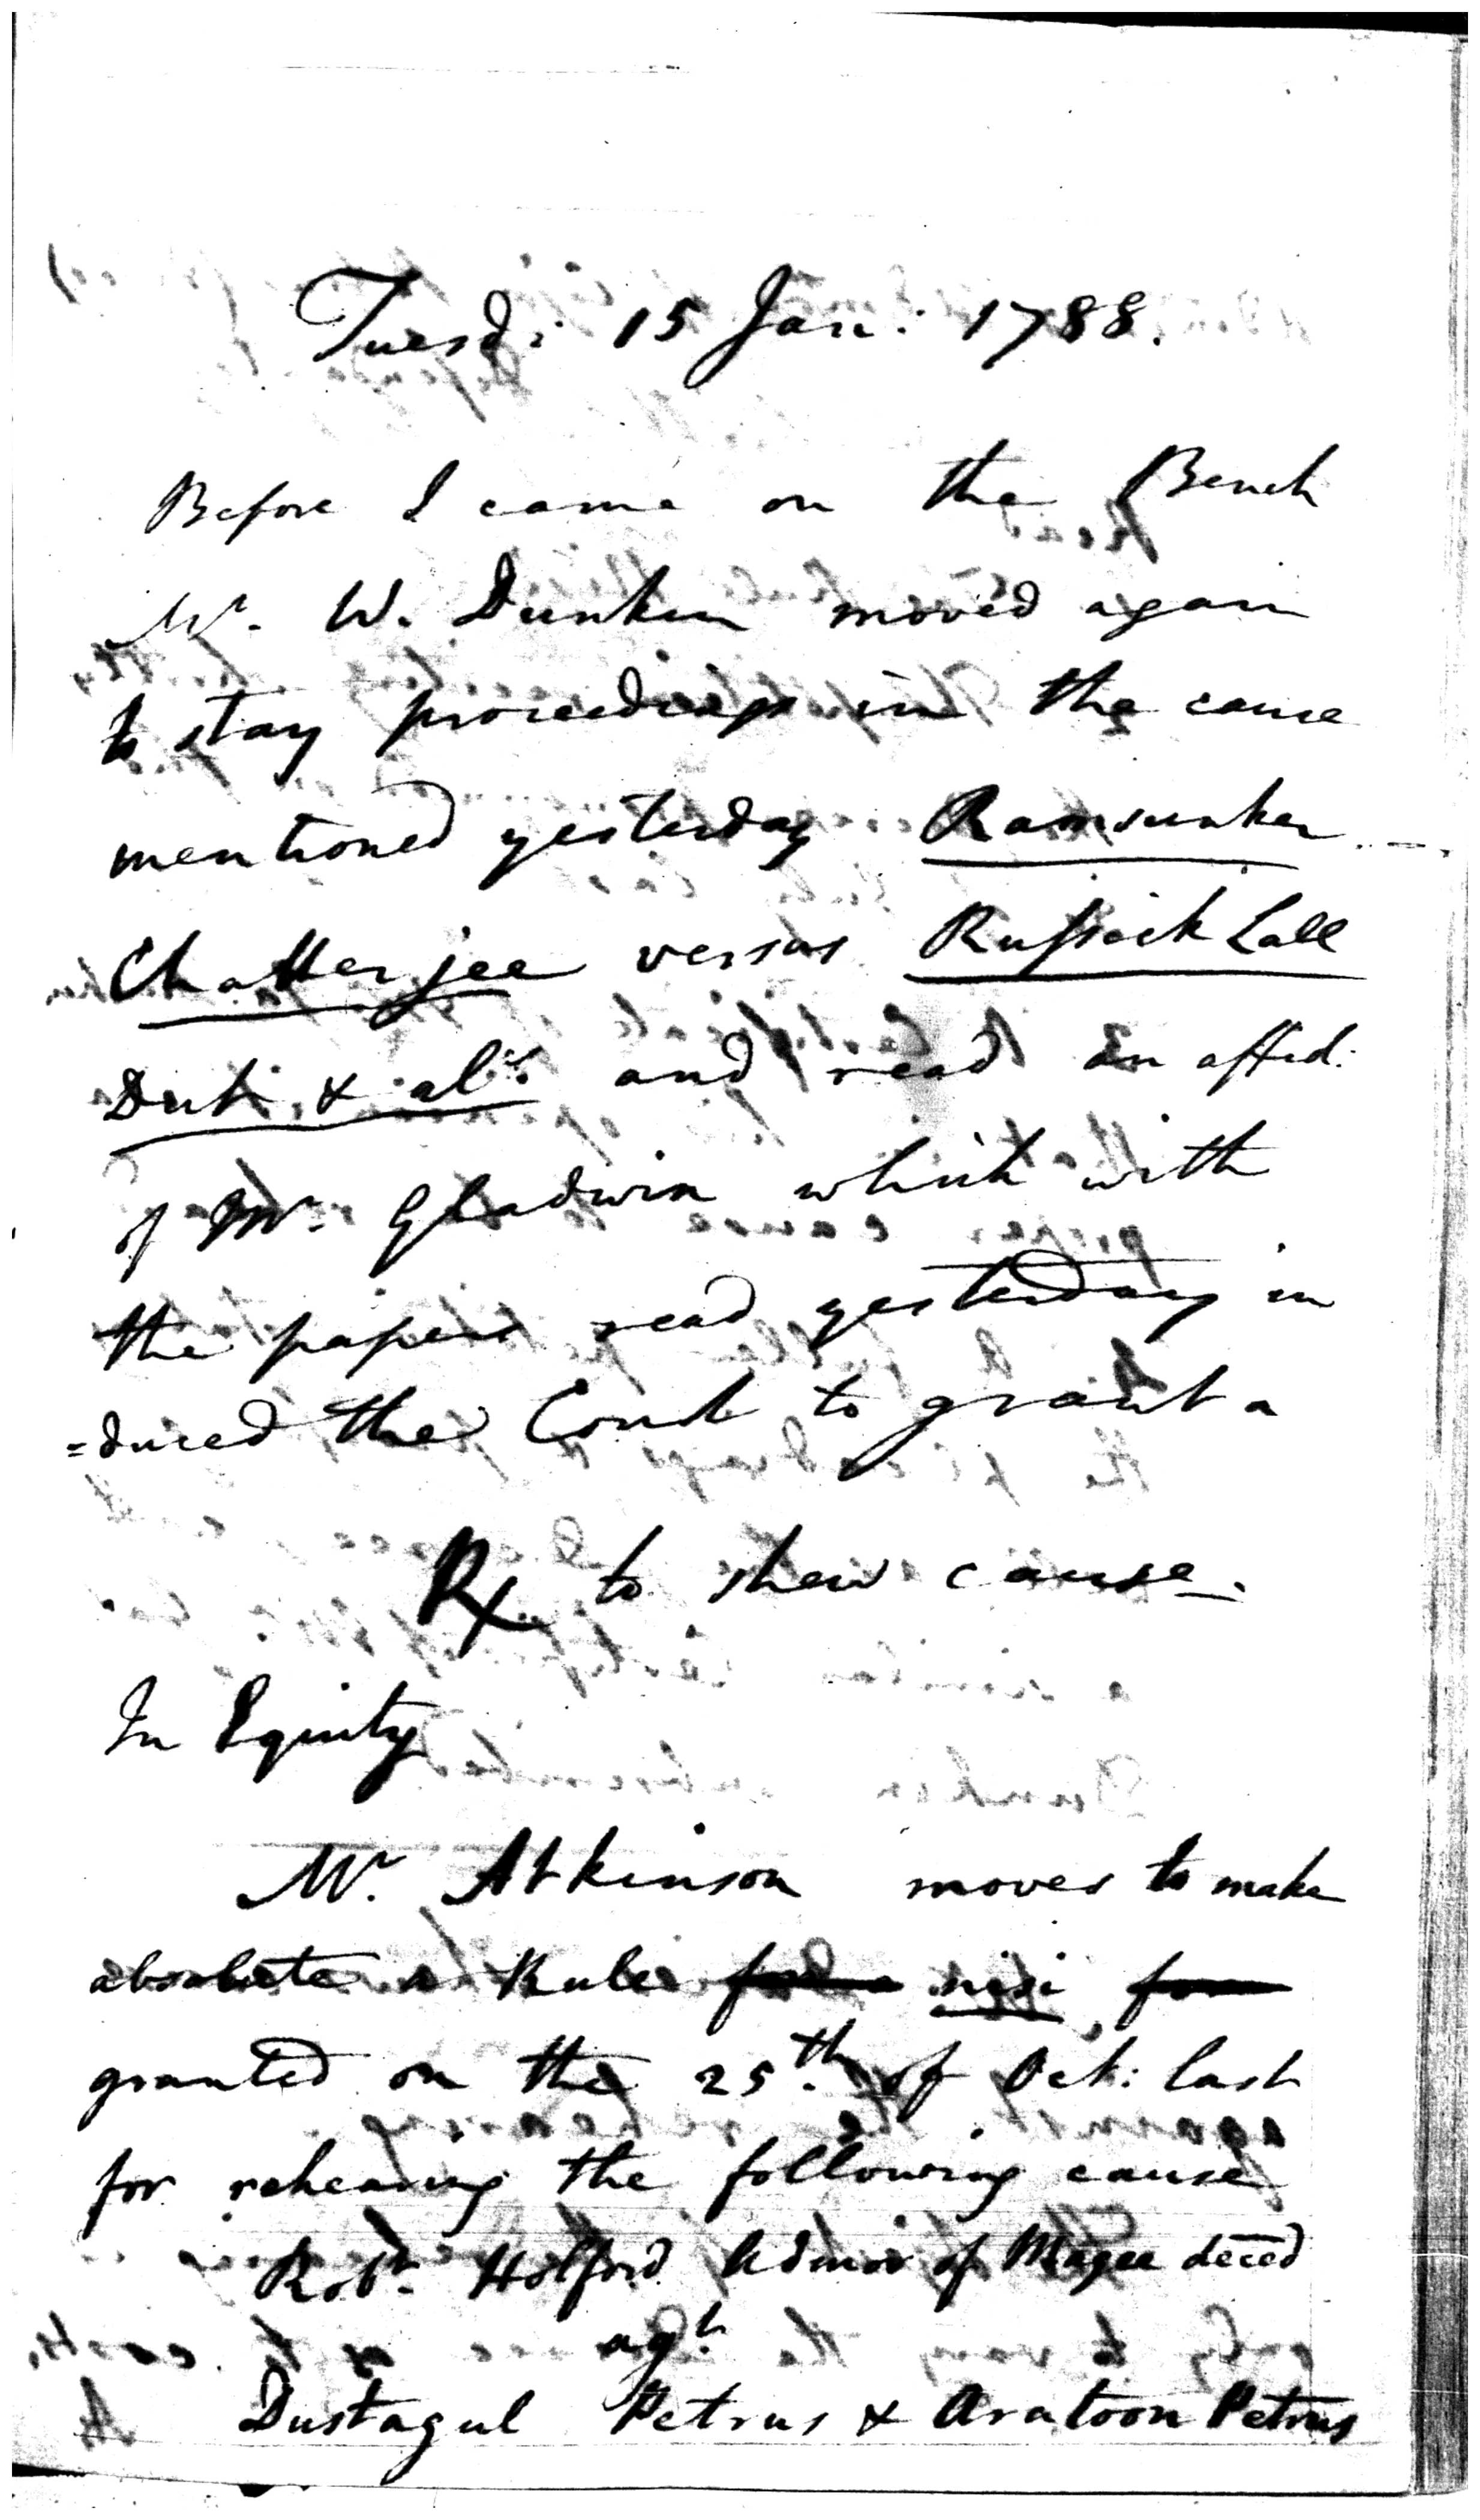 Tuesd: 15 Jan: 1788.
Before I came on the Bench
Mr. W. Dunkin moved again
to stay proceedings in the cause
mentioned yesterday Ramsunker
Chatterjee versus Russick Lall
Dutt & als. and read an affid:
of Mr. Gladwin which with
the papers read yesterday in
=duced the Court to grant a
Rx to shew cause.
In Equity
Mr. Atkinson moves to make
absolute a Rule nisi
granted on the 25th. of Oct: last
for rehearing the following cause
Robt. Holford Admor of Magee deced
agt.
Dustagul Petrus & Aratoon Petrus